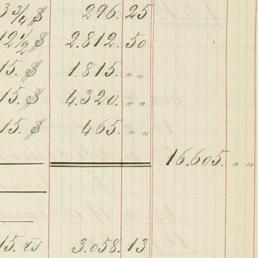 3 3/4 $ 296. 25
12 1/2 $ 2.812. 50
15. $ 1.815. " "
15. $ 4.320. " "
15. $ 465. " "
16.605. " "
15. rs 3.058. 13